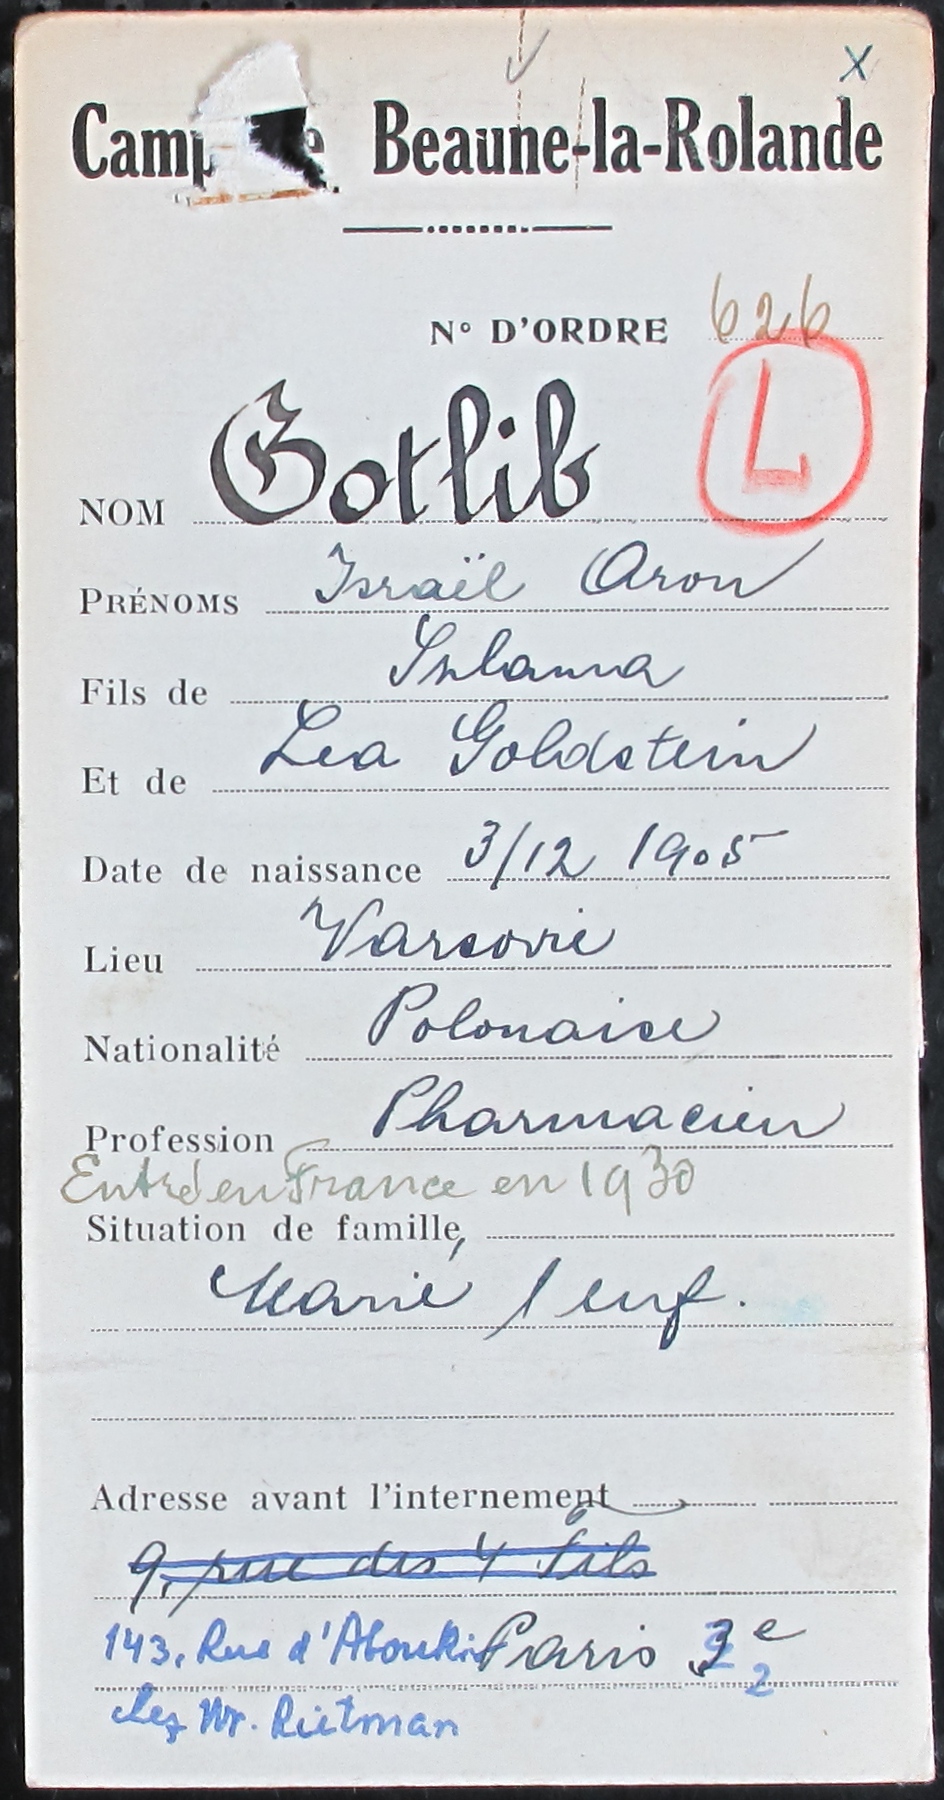 Camp de Beaune-la-Rolande
X
N° D'ORDRE 626
L
NOM Gotlib
PRÉNOMS Israël Aron
Fils de Szlama
Et de Lea Goldstein
Date de naissance 3/12 1905
Lieu Varsovie
Nationalité Polonaise
Profession Pharmacien
Entré en France en 1930
Situation de famille,
Marié 1 enf.
Adresse avant l'internement
9, rue des 4 fils
143, Rue d'Aboukir Paris 2e
2
chez Mr. Rietman